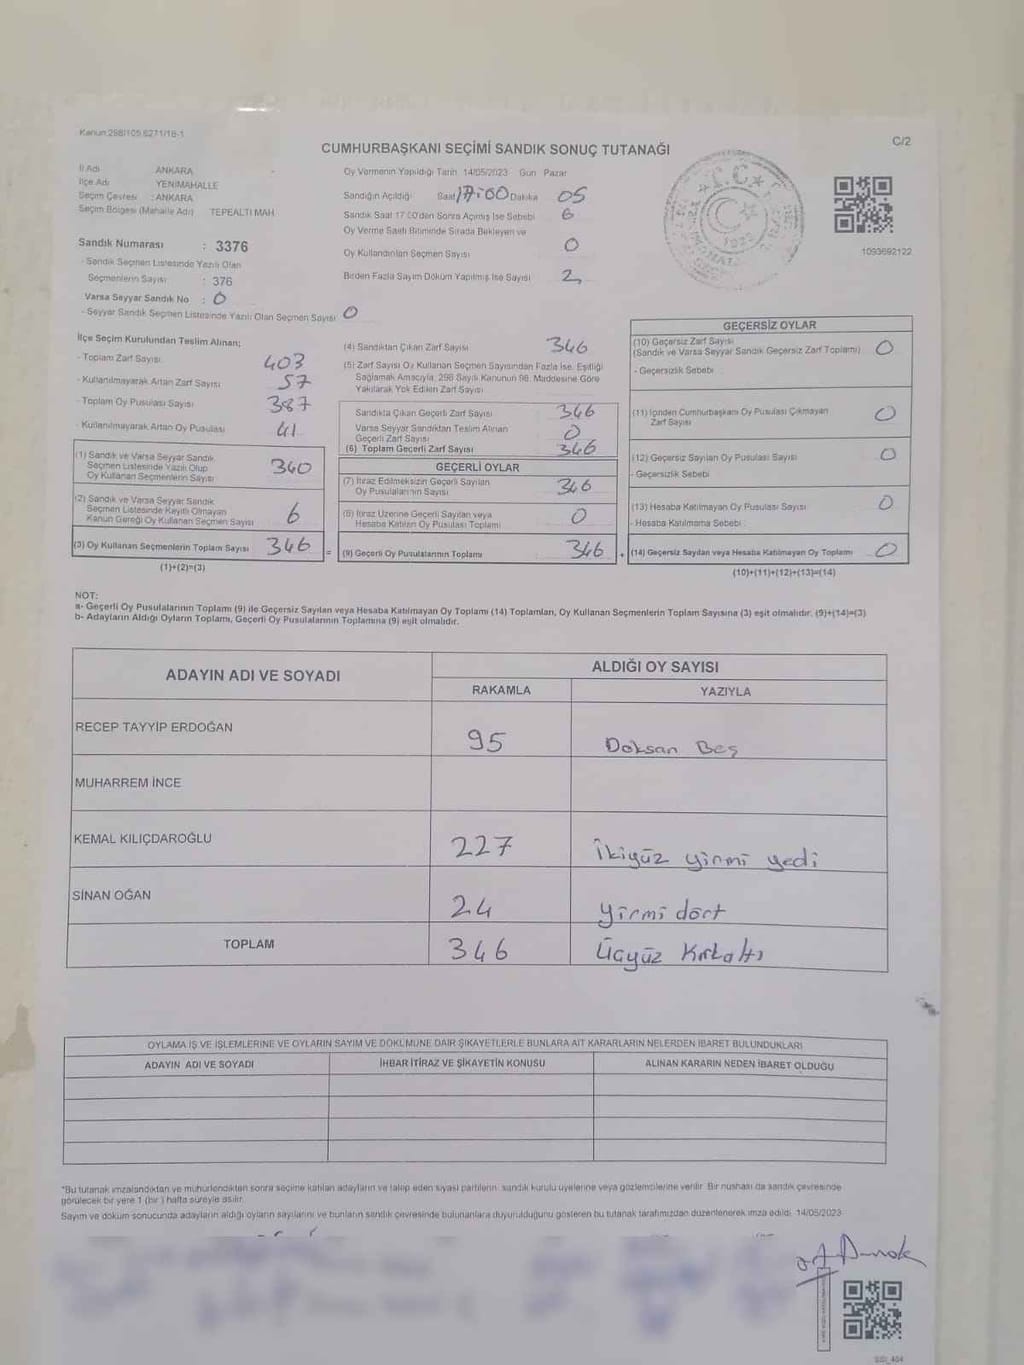 Kanun:298/105,6271/18-1
C/2
CUMHURBAŞKANI SEÇİMİ SANDIK SONUÇ TUTANAĞI
İl Adı : ANKARA
İlçe Adı : YENİMAHALLE
Seçim Çevresi : ANKARA
Seçim Bölgesi (Mahalle Adı) TEPEALTI MAH.
Sandık Numarası : 3376
- Sandık Seçmen Listesinde Yazılı Olan
Seçmenlerin Sayısı : 376
Varsa Seyyar Sandık No : 0
- Seyyar Sandık Seçmen Listesinde Yazılı Olan Seçmen Sayısı 0
Oy Vermenin Yapıldığı Tarih 14/05/2023 Gün Pazar
Sandığın Açıldığı Saat 17:00 Dakika 05
Sandık Saat 17.00'den Sonra Açılmış İse Sebebi 6
Oy Verme Saati Bitiminde Sırada Bekleyen ve
Oy Kullandırılan Seçmen Sayısı 0
Birden Fazla Sayım Döküm Yapılmış İse Sayısı 2
T.C.
1093692122
İlçe Seçim Kurulundan Teslim Alınan;
- Toplam Zarf Sayısı 403
- Kullanılmayarak Artan Zarf Sayısı 57
- Toplam Oy Pusulası Sayısı 387
- Kullanılmayarak Artan Oy Pusulası 41
(1) Sandık ve Varsa Seyyar Sandık
Seçmen Listesinde Yazılı Olup
Oy Kullanan Seçmenlerin Sayısı 340
(2) Sandık ve Varsa Seyyar Sandık
Seçmen Listesinde Kayıtlı Olmayan
Kanun Gereği Oy Kullanan Seçmen Sayısı 6
(3) Oy Kullanan Seçmenlerin Toplam Sayısı 346
(1)+(2)=(3)
(4) Sandıktan Çıkan Zarf Sayısı 346
(5) Zarf Sayısı Oy Kullanan Seçmen Sayısından Fazla İse, Eşitliği
Sağlamak Amacıyla, 298 Sayılı Kanunun 98. Maddesine Göre
Yakılarak Yok Edilen Zarf Sayısı
Sandıkta Çıkan Geçerli Zarf Sayısı 346
Varsa Seyyar Sandıktan Teslim Alınan
Geçerli Zarf Sayısı 0
(6) Toplam Geçerli Zarf Sayısı 346
GEÇERLİ OYLAR
(7) İtiraz Edilmeksizin Geçerli Sayılan
Oy Pusulalarının Sayısı 346
(8) İtiraz Üzerine Geçerli Sayılan veya
Hesaba Katılan Oy Pusulası Toplamı 0
= (9) Geçerli Oy Pusulalarının Toplamı 346
GEÇERSİZ OYLAR
(10) Geçersiz Zarf Sayısı
(Sandık ve Varsa Seyyar Sandık Geçersiz Zarf Toplamı) 0
- Geçersizlik Sebebi
(11) İçinden Cumhurbaşkanı Oy Pusulası Çıkmayan
Zarf Sayısı 0
(12) Geçersiz Sayılan Oy Pusulası Sayısı 0
- Geçersizlik Sebebi
(13) Hesaba Katılmayan Oy Pusulası Sayısı 0
- Hesaba Katılmama Sebebi
+ (14) Geçersiz Sayılan veya Hesaba Katılmayan Oy Toplamı 0
(10)+(11)+(12)+(13)=(14)
NOT:
a- Geçerli Oy Pusulalarının Toplamı (9) ile Geçersiz Sayılan veya Hesaba Katılmayan Oy Toplamı (14) Toplamları, Oy Kullanan Seçmenlerin Toplam Sayısına (3) eşit olmalıdır. (9)+(14)=(3)
b- Adayların Aldığı Oyların Toplamı, Geçerli Oy Pusulalarının Toplamına (9) eşit olmalıdır.
ADAYIN ADI VE SOYADI
ALDIĞI OY SAYISI
RAKAMLA YAZIYLA
RECEP TAYYİP ERDOĞAN 95 Doksan Beş
MUHARREM İNCE
KEMAL KILIÇDAROĞLU 227 İkiyüz yirmi yedi
SİNAN OĞAN 24 yirmi dört
TOPLAM 346 Üçyüz Kırkaltı
OYLAMA İŞ VE İŞLEMLERİNE VE OYLARIN SAYIM VE DÖKÜMÜNE DAİR ŞİKAYETLERLE BUNLARA AİT KARARLARIN NELERDEN İBARET BULUNDUKLARI
ADAYIN ADI VE SOYADI İHBAR İTİRAZ VE ŞİKAYETİN KONUSU ALINAN KARARIN NEDEN İBARET OLDUĞU
*Bu tutanak imzalandıktan ve mühürlendikten sonra seçime katılan adayların ve talep eden siyasi partilerin, sandık kurulu üyelerine veya gözlemcilerine verilir. Bir nüshası da sandık çevresinde
görülecek bir yere 1 (bir ) hafta süreyle asılır.
Sayım ve döküm sonucunda adayların aldığı oyların sayılarını ve bunların sandık çevresinde bulunanlara duyurulduğunu gösteren bu tutanak tarafımızdan düzenlenerek imza edildi. 14/05/2023